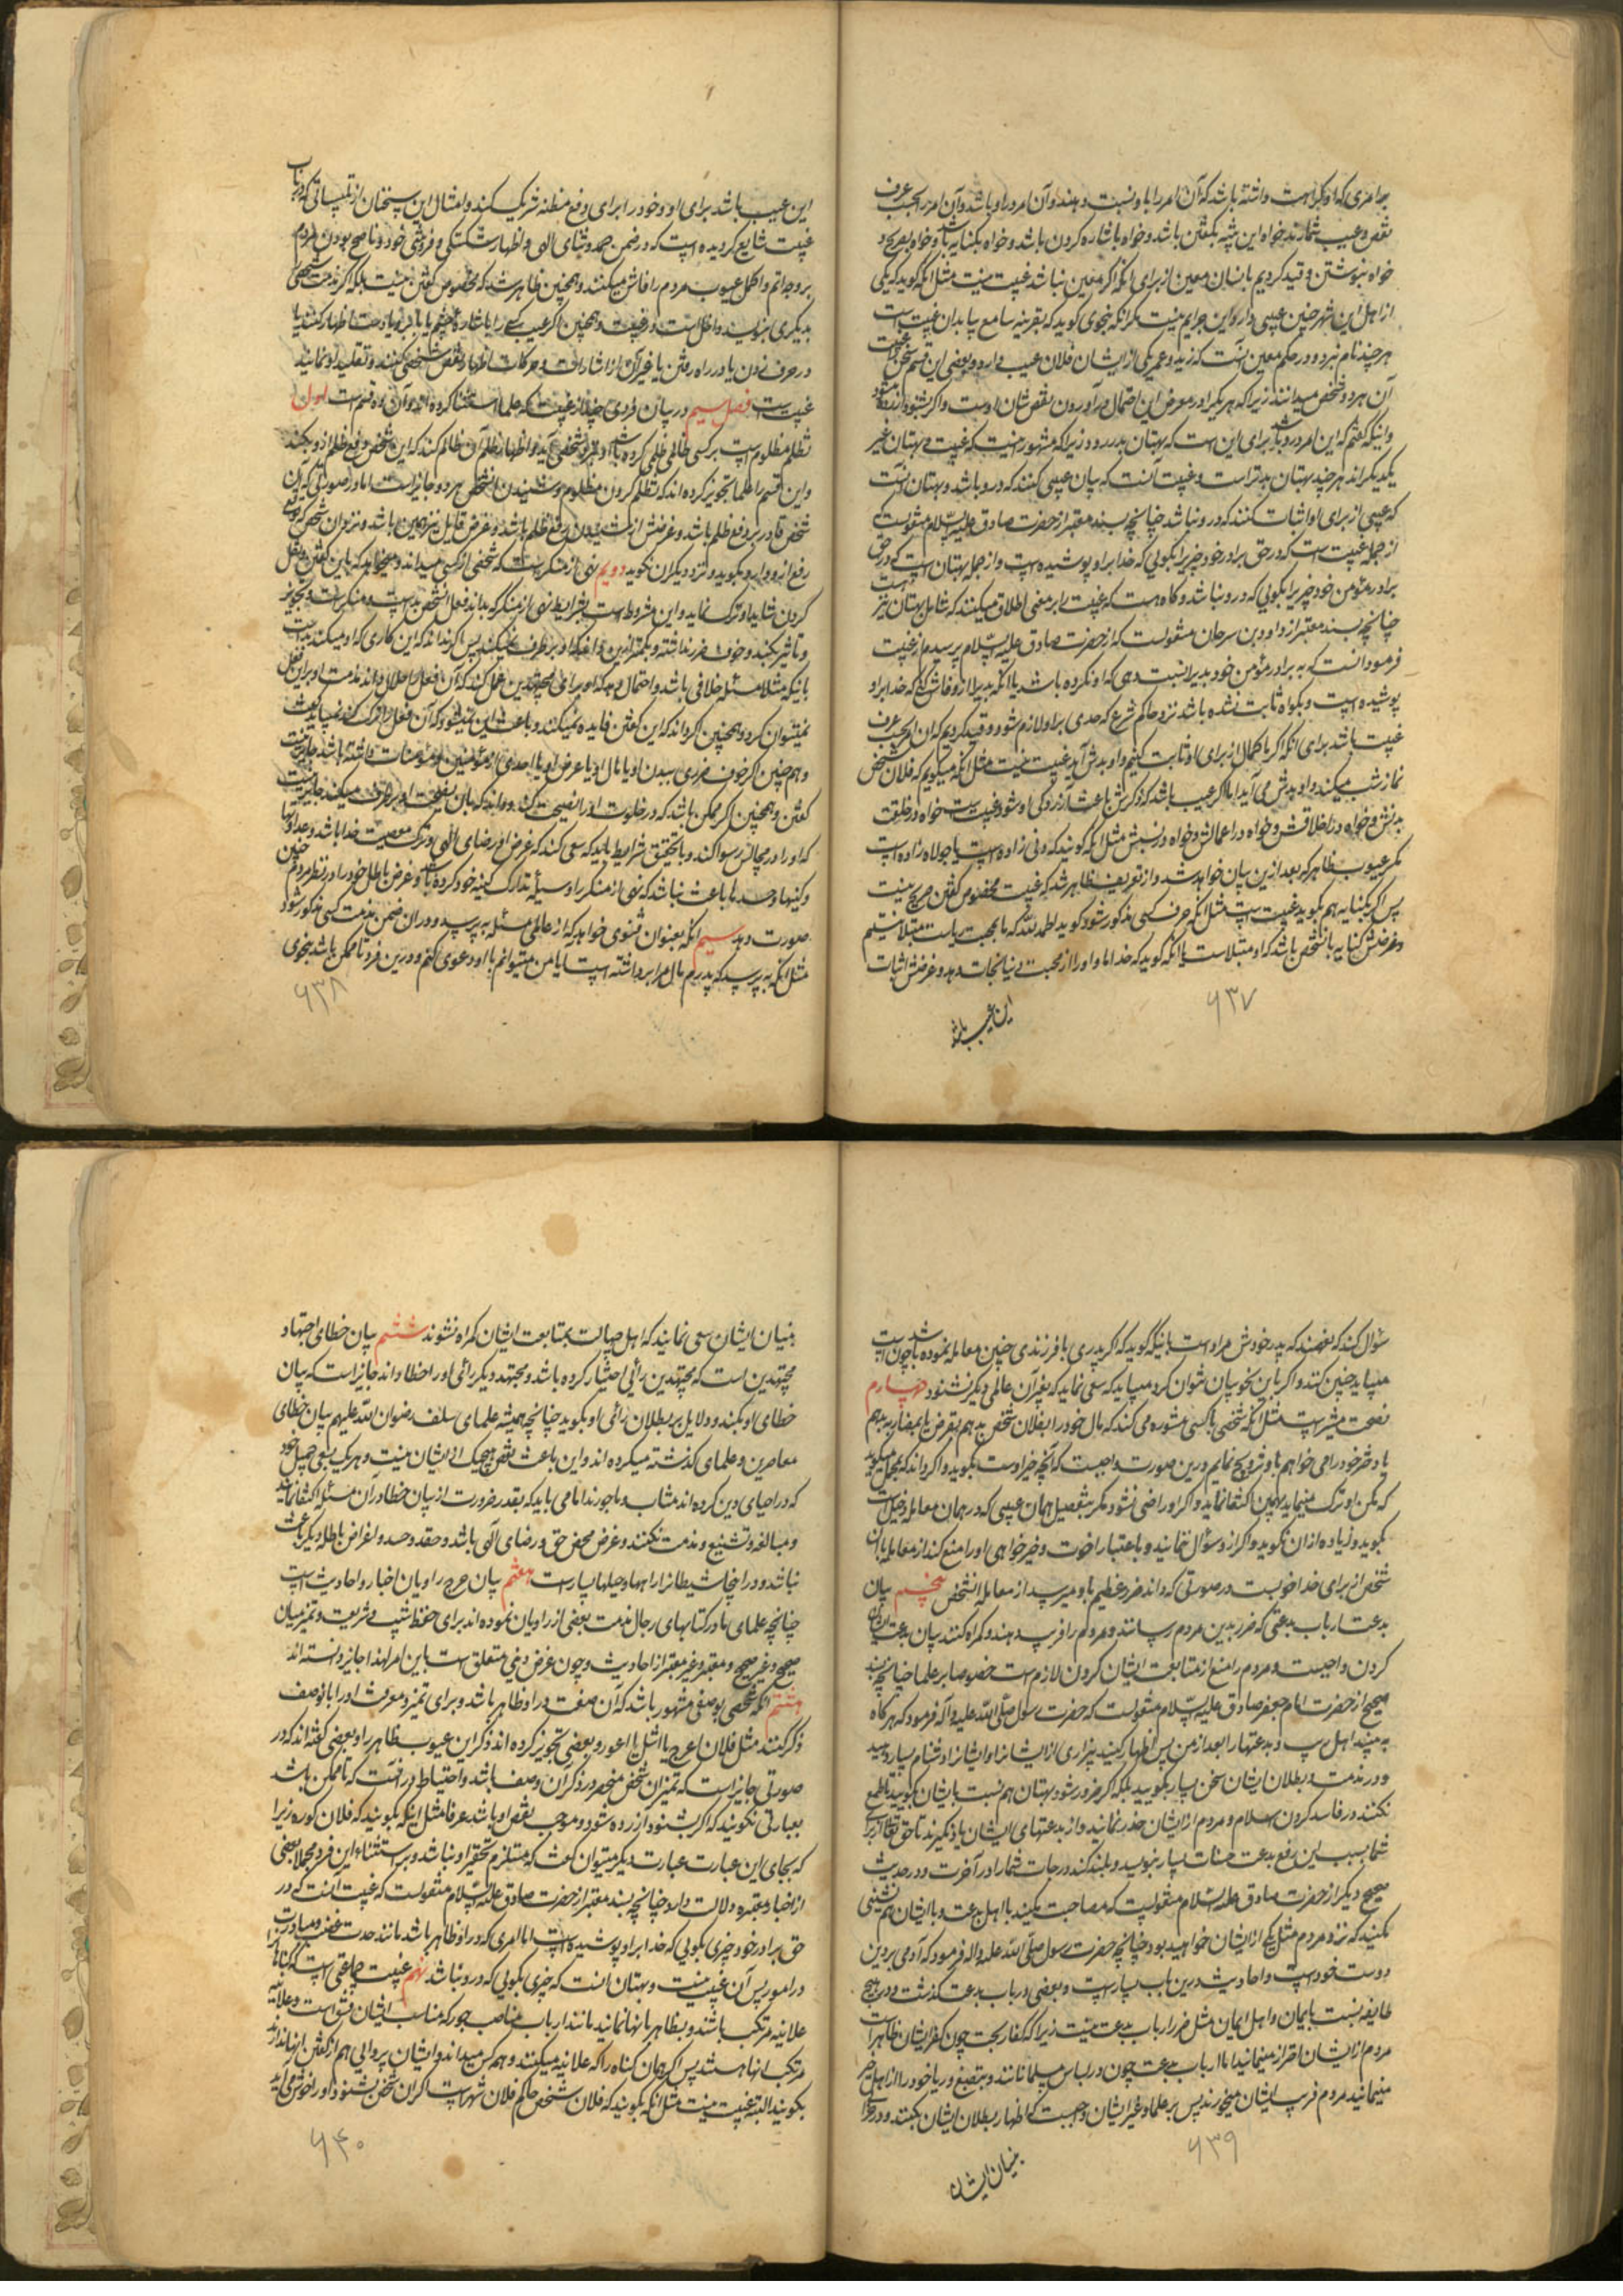 بهر امری که او کراهت داشته باشد که آن امر را باو نسبت دهند و آن امر در او باشد و آن امر را بحسب عرف
نقص و عیب شمارند خواه این شیه بگفتن باشد و خواه باشاره کردن باشد و خواه بکنایه باشد و خواه بصریح و
خواه بنوشتن و قید کردیم بانسان معین از برای آنکه اگر معین نباشد غیبت نیست مثل آنکه گوید که یکی
از اهل این شهر چنین عیبی دارد این حرام نیست مگر آنکه بنحوی گوید که بقرینه سامع بیابد آن غیبت است
هر چند نام نبرد و در حکم معین است که زید و عمر یکی از ایشان فلان عیب دارد و بعضی این قسم سخن را غیبت
آن هر دو شخص میدانند زیرا که هر یک را در معرض این احتمال در آوردن نقص شان اوست و اگر بشنود آزرده میشود
و اینکه گفتم که این امر درو باشد برای این است که بهتان بدر رود زیرا که مشهور اینست که غیبت و بهتان غیر
یکدیگراند هر چند بهتان بدتر است و غیبت آنست که بیان عیبی کنند که درو باشد و بهتان آنست
که عیبی از برای او اثبات کنند که درو نباشد چنانچه بسند معتبر از حضرت صادق علیه السلام منقولست که
از جمله غیبت است که در حق برادر خود چیزیرا بگوئی که خدا بر او پوشیده است و از جمله بهتان است که در حق
برادر مؤمن خود چیزیرا بگوئی که درو نباشد و گاه هست که غیبت را بر معنی اطلاق میکنند که شامل بهتان نیز هست
چنانچه بسند معتبر از داود بن سرحان منقولست که از حضرت صادق علیه السلام پرسیدم از غیبت
فرمود آنست که به برادر مؤمن خود بدیرا نسبت دهی که او نکرده باشد یا آنکه بدیرا ازو فاش کنی که خدا بر او
پوشیده است و بگواه ثابت نشده باشد نزد حاکم شرع که حدی بر او لازم شود و قید کردیم که آن را بحسب عرف
غیبت باشد برای آنکه اگر ما کمالی از برای او ثابت کنیم و او بدش آید غیبت نیست مثل آنکه میگویم که فلان شخص
نماز شب میکند و او بدش می آید اما اگر عیب باشد که ذکرش باعث آزردگی او شود غیبت است خواه در خلقت
بدنش و خواه در اخلاقش و خواه در اعمالش و خواه در نسبش مثل آنکه گویند که دنی زاده است یا جولاه زاده است
مگر عیوب ظاهر که بعد ازین بیان خواهد شد و از تعریف ظاهر شد که غیبت مخصوص گفتن صریح نیست
پس اگر بکنایه هم بگوید غیبت است مثل آنکه حرف کسی مذکور شود گوید الحمد لله که ما بمحبت ریاست مبتلا نیستم
و غرضش کنایه بآن شخص باشد که او مبتلاست یا آنکه گوید که خدا ما و او را از محبت دنیا نجات دهد و غرضش اثبات
۶۳۷
این عیب باشد
این عیب باشد برای او و خود را برای دفع مظنه شریک کند و امثال این سخنان از تلبیساتی که در باب
غیبت شایع گردیده است که در ضمن حمد و ثنای الهی و اظهار شکستگی و فروتنی خود و ناصح بودن مردم
بر وجه اتم و اکمل عیوب مردم را فاش میکنند و همچنین ظاهر شد که مخصوص گفتن نیست بلکه اگر مذمت شخصی
بدیگری بنویسد داخل است در غیبت و همچنین اگر عیب کسی را باشاره چشم یا بابرو یا دست اظهار کند یا
در حرف زدن یا در راه رفتن یا غیر آن از اشارات و حرکات اظهار نقص شخصی کنند و تقلید او نمایند
غیبت است فصل سیم در بیان فردی چند از غیبت که علما استثنا کرده اند و آن ده قسم است اول
تظلم مظلوم است بر کسی ظالمی ظلمی کرده باشد و نزد شخصی آید و اظهار ظلم آن ظالم کند که این شخص دفع ظلم ازو بکند
و این قسم را علما تجویز کرده اند که تظلم کردن مظلوم و شنیدن آن شخص هر دو جایز است اما در صورتی که این
شخص قادر بر دفع ظلم باشد و غرضش از شنیدن رفع ظلم باشد و غرض قایل نیز همین باشد و نزد آن شخص که توقع
رفع ازو دارد بگوید و نزد دیگران نگوید دویم نهی از منکر است که شخصی از کسی میداند و میخواهد که باین گفتن و نقل
کردن شاید او ترک نماید و این مشروط است بشرایط نهی از منکر که بداند فعل آن شخص بد است و منکر است و تجویز
و تاثیر بکند و خوف ضرر نداشته و بکمتر ازین داند که او بر طرف نمیکند پس اگر نداند که این کاری که او میکند بد است
یا آنکه مثلا مسئله خلافی باشد و احتمال دهد که او برای مجتهدین عمل کند که آن فعل را حلال داند مذمت او بر این فعل
نمیتوان کرد و همچنین گر داند که این گفتن فایده نمیکند و باعث این نمیشود که آن فعل را ترک کند نمیباید گفت
و هم چنین اگر خوف ضرری ببدن او یا مال او یا عرض او یا احدی از مؤمنین و مؤمنات داشته باشد جایز نیست
گفتن و همچنین اگر ممکن باشد که در خلوت او را نصیحت کند و داند که بآن نصیحت او برطرف میکند جایز نیست
که او را در مجالس رسوا کند و با تحقیق شرایط باید که سعی کند که غرض او رضای الهی و ترک معصیت خدا باشد و عداوتها
و کینها و حسدها باعث نباشد که نهی از منکر را وسیلهٔ تدارک کینه خود کرده باشد و غرض باطل خود را در نظر مردم چنین
صورت دهد سیم آنکه بعنوان فتوی خواهد که از عالمی مسئله بپرسد و در آن ضمن مذمت کسی مذکور شود
مثل آنکه بپرسد که پدرم مال مرا برداشته است آیا من میتوانم با او دعوی کنم و درین فرد تا ممکن باشد بنحوی
۶۳۸
سؤال کند که نفهمند که پدر خودش مراد است باینکه گوید که اگر پدری با فرزندی چنین معامله نموده باشد چون است
میباید چنین کنند و اگر باین نحو بیان نتوان کرد میباید که سعی نماید که بغیر آن عالمی دیگر نشنود چهارم
نصیحت مستشیر است مثل آنکه شخصی با کسی مشوره می کند که مال خود را بفلان شخص بدهم بقرض یا بمضاربه بدهم
یا دختر خود را می خواهم باو تزویج نمایم درین صورت واجبست که آنچه خیر اوست بگوید و اگر داند که مجمل میگوید
که مکن او ترک مینماید بهمین اکتفا نماید و اگر او راضی نشود مگر بتفصیل همان عیبی که در همان معامله دخیل است
بگوید و زیاده از آن نگوید و اگر ازو سؤال ننمایند و باعتبار اخوت و خیرخواهی او را منع کند از معامله با آن
شخص از برای خدا خوبست در صورتی که داند ضرر عظیم باو میرسد از معامله آن شخص پنجم بیان
بدعت ارباب بدعتی که ضرر بدین مردم رسانند و مردم را فریب دهند و گمراه کنند بیان بدعت ایشان
کردن واجبست و مردم را منع از متابعت ایشان کردن لازم است خصوصا بر علما چنانچه بسند
صحیح از حضرت امام جعفر صادق علیه السلام منقولست که حضرت رسول صلی الله علیه و آله فرمود که هر گاه
به بینید اهل ریب و بدعتها را بعد از من پس اظهار کنید بیزاری از ایشانرا و ایشانرا دشنام بسیار دهید
و در مذمت و بطلان ایشان سخن بسیار بگویید بلکه اگر ضرور شود بهتان هم نسبت بایشان بگویید تا طمع
نکنند در فاسد کردن اسلام و مردم از ایشان حذر نمایند و از بدعتهای ایشان یاد نگیرند تا حق تعالی از برای
شما بسبب این رفع بدعت حسنات بسیار بنویسد و بلند کند درجات شما را در آخرت و در حدیث
صحیح دیگر از حضرت صادق علیه السلام منقولست که مصاحبت مکنید با اهل بدعت و با ایشان همنشینی
مکنید که نزد مردم مثل یکی از ایشان خواهید بود چنانچه حضرت رسول صلی الله علیه و اله فرمود که آدمی بر دین
دوست خود است و احادیث درین باب بسیار است و بعضی در باب بدعت گذشت و در هیچ
طایفه نسبت بایمان و اهل ایمان مثل ضرر ارباب بدعت نیست زیرا که کفار بحت چون کفر ایشان ظاهر است
مردم از ایشان احتراز مینمایند اما ارباب بدعت چون در لباس مسلمانانند و بتصنع و ریا خود را از اهل خیر
مینمایند مردم فریب ایشان میخورند پس بر علما و غیر ایشان واجبست که اظهار بطلان ایشان بکنند و در خرابی
۶۳۹
بنیان ایشان
بنیان ایشان سعی نمایند که اهل جهالت بمتابعت ایشان گمراه نشوند ششم بیان خطای اجتهاد
مجتهدین است که مجتهدین رائی اختیار کرده باشد و مجتهد دیگر رائی او را خطا داند جایز است که بیان
خطای او بکند و دلایل بر بطلان رائی او بگوید چنانچه همیشه علمای سلف رضوان الله علیهم بیان خطای
معاصرین و علمای گذشته میکرده اند و این باعث نقص هیچیک از ایشان نیست و هر یک بسعی جمیل خود
که در احیای دین کرده اند مثاب و ماجورند اما می باید که بقدر ضرورت از بیان خطا در آن مسئله اکتفا نمایند
و مبالغه و تشنیع و مذمت نکنند و غرض محض حق و رضای الهی باشد و حقد و حسد و اغراض باطله دیگر باعث
نباشد و در اینجا شیطانرا راهها و حیلها بسیار است هفتم بیان جرح راویان اخبار و احادیث است
چنانچه علمای ما در کتابهای رجال مذمت بعضی از راویان نموده اند برای حفظ سنت و شریعت و تمیز میان
صحیح و غیر صحیح و معتبر و غیر معتبر از احادیث و چون غرض دینی متعلق است باین امر لهذا جایز دانسته اند
هشتم آنکه شخصی بوصفی مشهور باشد که آن صفت در او ظاهر باشد و برای تمیز و معرفت او را بآن وصف
ذکر کنند مثل فلان اعرج یا اشل یا اعور و بعضی تجویز کرده اند ذکر این عیوب ظاهر را و بعضی گفته اند که در
صورتی جایز است که تمیز آن شخص منحصر در ذکر آن وصف باشد و احتیاط در آنست که تا ممکن باشد
بعبارتی نگویند که اگر بشنود آزرده شود و موجب نقص او باشد عرفا مثل اینکه بگویند که فلان کوره زیرا
که بجای این عبارت عبارت دیگر میتوان گفت که مستلزم تحقیر او نباشد و بر استثناء این فرد مجملا بعضی
از اخبار معتبره دلالت دارد چنانچه بسند معتبر از حضرت صادق علیه السلام منقولست که غیبت آنست که در
حق برادر خود چیزی بگوئی که خدا بر او پوشیده است اما امری که در او ظاهر باشد مانند حدت غضب و مبادرت
در امور پس آن غیبت نیست و بهتان آنست که چیزی بگوئی که درو نباشد نهم غیبت جماعتی است که گناهانرا
علانیه مرتکب باشند و بظاهر بآنها نمایند مانند ارباب مناصب جور که مناصب ایشان فسق است و علانیه
مرتکب آنها هستند پس اگر همان گناه را که علانیه میکنند و همه کس میداند و ایشان پروایی هم از گفتن آنها ندارند
بگویند البته غیبت نیست مثل آنکه بگویند که فلان شخص حاکم فلان شهر است اگر آن شخص بشنود او را خوش می آید
۶۴۰